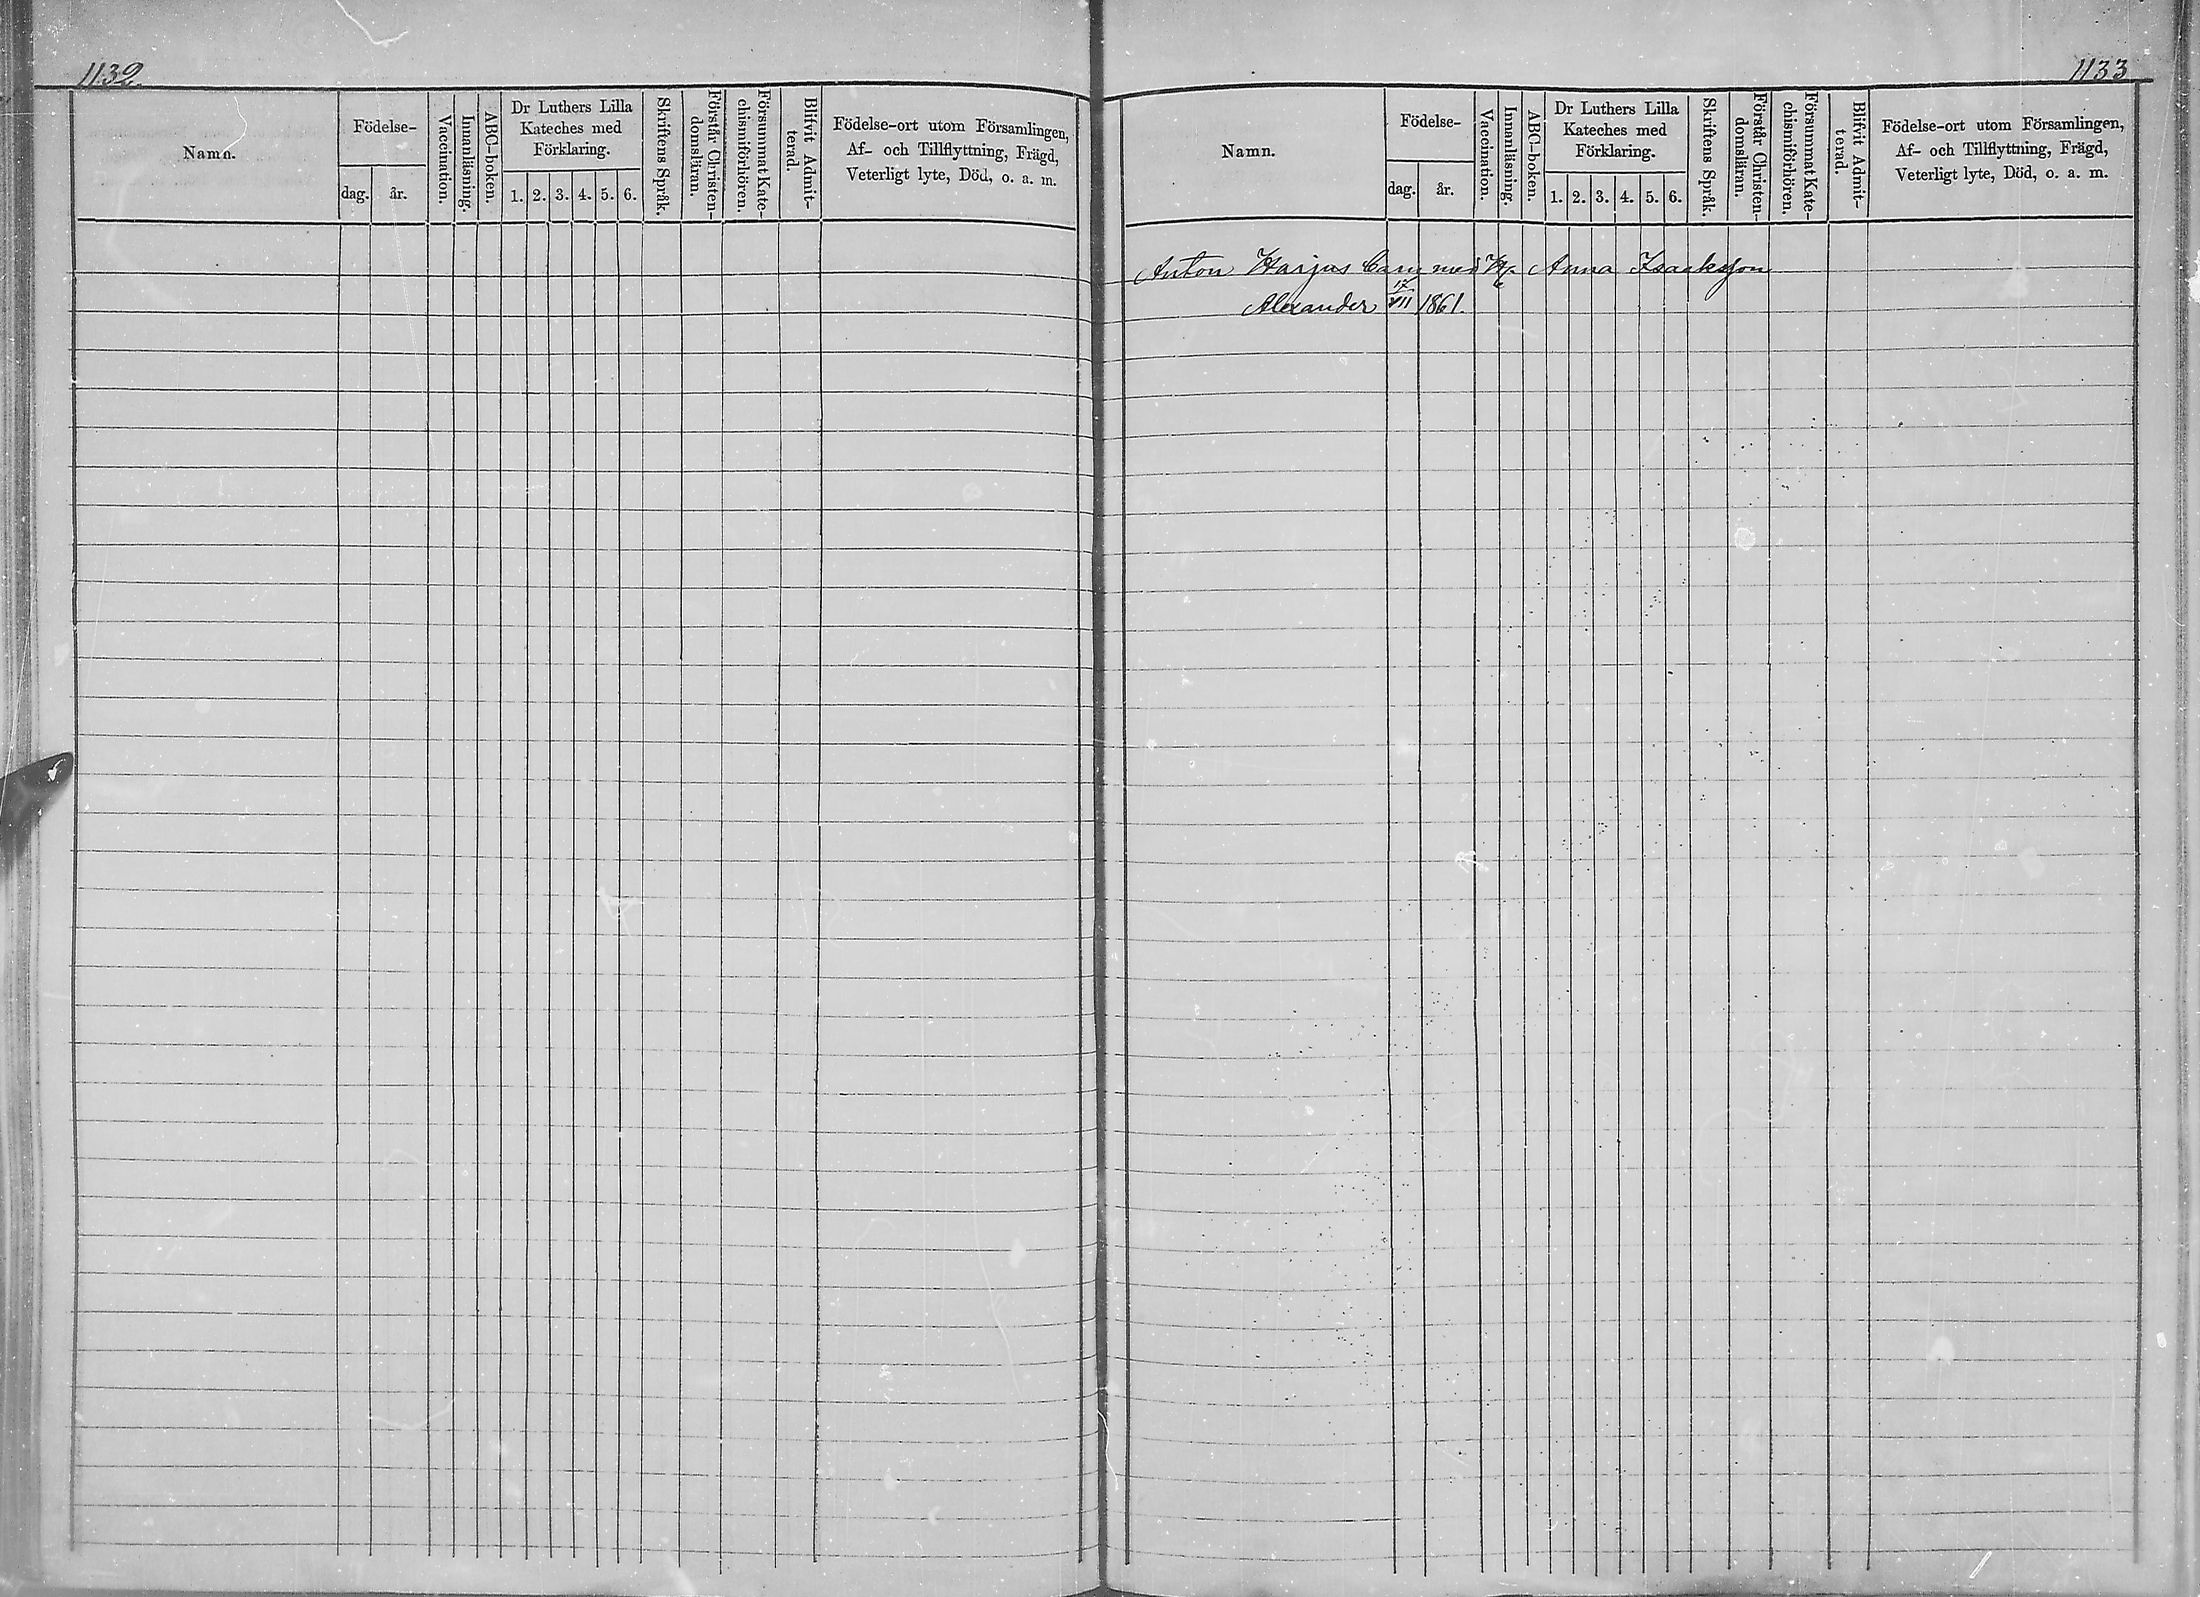 1132
Namn.
Födelse-
dag.
år.
Vaccination.
Innanläsning.
ABC-boken.
Dr Luthers Lilla
Kateches med
Förklaring.
1. 2. 3. 4. 5. 6.
Skriftens Språk.
Förstår Christen-
domsläran.
Försummat Kate-
chismiförhören.
Blifvit Admit-
terad.
Födelse-ort utom Församlingen,
Af- och Tillflyttning, Frägd,
Veterligt lyte, Död, o. a. m.
1133
Namn.
Födelse-
dag.
år.
Vaccination.
Innanläsning.
ABC-boken.
Dr Luthers Lilla
Kateches med
Förklaring.
1. 2. 3. 4. 5. 6.
Skriftens Språk.
Förstår Christen-
domsläran.
Försummat Kate-
chismiförhören.
Blifvit Admit-
terad.
Födelse-ort utom Församlingen,
Af- och Tillflyttning, Frägd,
Veterligt lyte, Död, o. a. m.
Anton Harjus barn med Anna Isaaksson
Alexander 17/VII 1861.